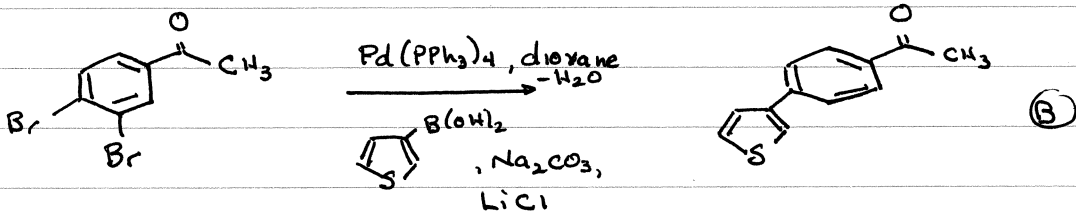 O
CH3
Br
Br
Pd(PPh3)4, dioxane
-H2O
B(OH)2
S
, Na2CO3,
LiCl
O
CH3
S
B